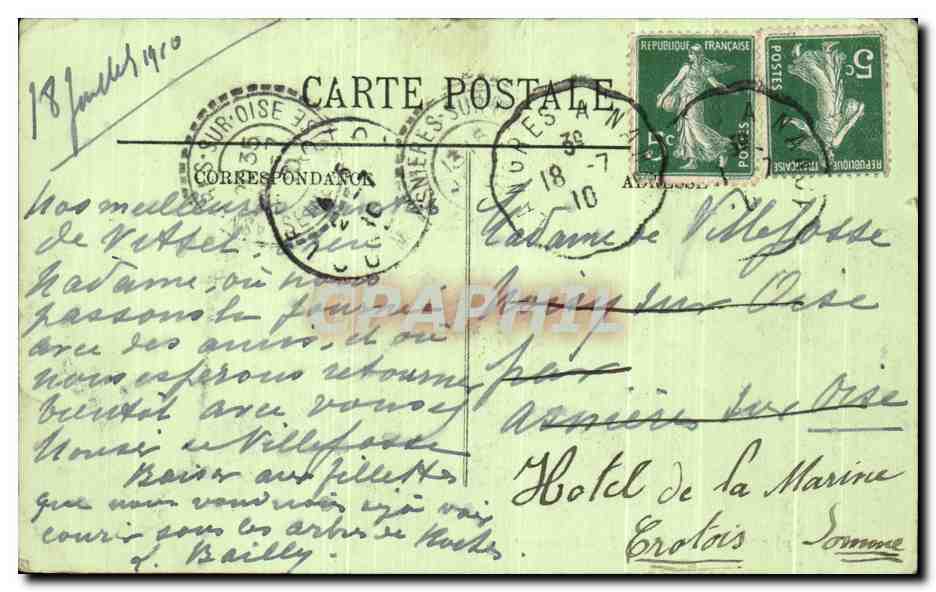 18 Juillet 1910
CARTE POSTALE
RÉPUBLIQUE FRANÇAISE
5c
POSTES
RÉPUBLIQUE FRANÇAISE
5c
POSTES
SUR-OISE
ASNIÈRES-SUR
LANGRES A NA
18 -7
10
CORRESPONDANCE
ADRESSE
Nos meilleurs
de Vittel, chère
Madame, où nous
passons la journée
avec des amis, et où
nous espérons retourner
bientôt avec vous et
Monsieur de Villefosse
Baiser aux fillettes
que nous voudrions déjà voir
courir sous les arbres de Roches.
L. Bailly.
Madame de Villefosse
sur Oise
par
Asnières sur Oise
Hotel de la Marine
Crotois Somme
CPAPHIL